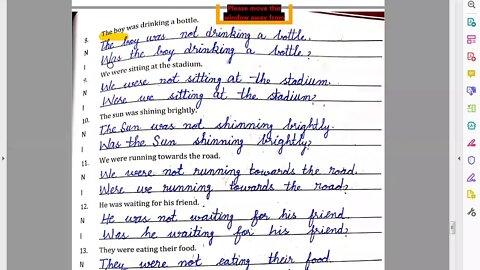 Please move this
window away from
The boy was drinking a bottle.
8.
N The boy was not drinking a bottle.
I Was the boy drinking a bottle?
We were sitting at the stadium.
9.
N We were not sitting at the stadium.
I Were we sitting at the stadium?
10. The sun was shining brightly.
N The Sun was not shinning brightly.
I Was the Sun shinning brightly?
11. We were running towards the road.
N We were not running towards the road.
I Were we running towards the road?
12. He was waiting for his friend.
N He was not waiting for his friend.
I Was he waiting for his friend?
13. They were eating their food.
N They were not eating their food.